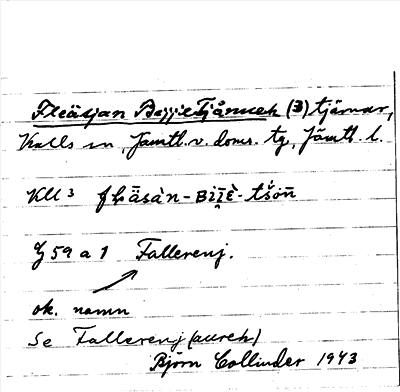 Fleäsjan Bejjie Tjånneh (3) tjärnar,
Kalls sn, Jämtl. v. doms. tg, Jämtl. l.
Kll 3 flǟsàn-Bi̮ī̮è-tšōn̄
G 59 a 1 Fallerenj.
ok. namn
Se Fallerenj (aureh)
Björn Collinder 1943